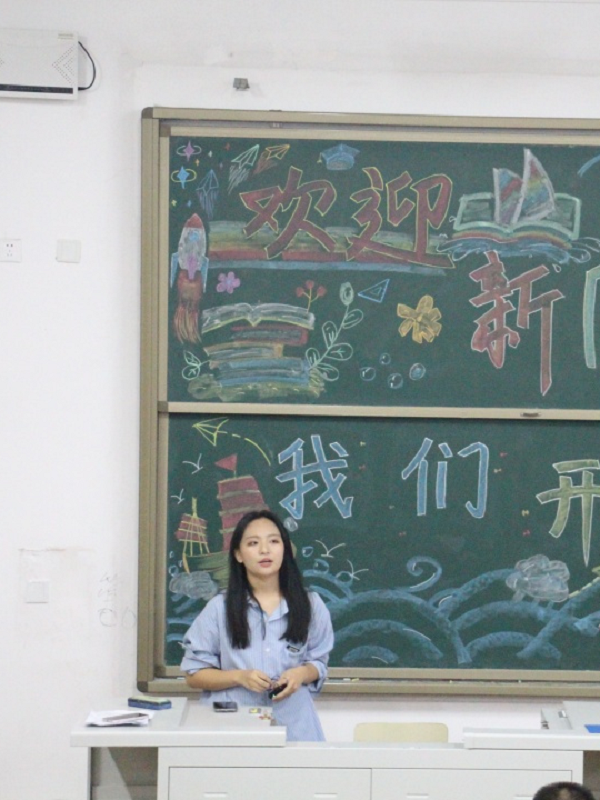 欢迎
新
我们开